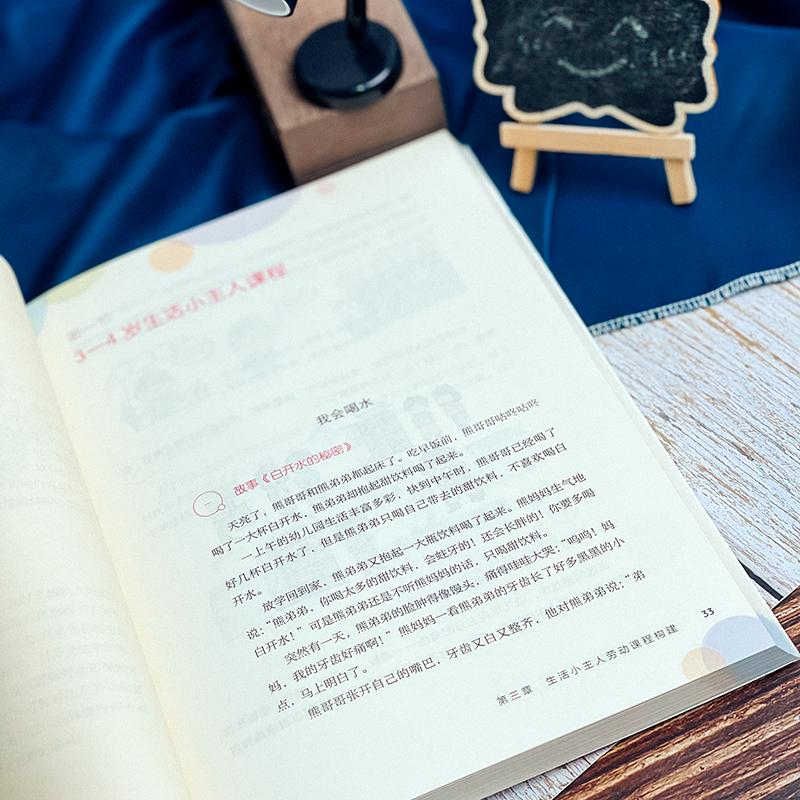 3—4岁生活小主人课程
我会喝水
故事《白开水的秘密》
天亮了，熊哥哥和熊弟弟都起床了。吃早饭前，熊哥哥咕咚咕咚
喝了一大杯白开水，熊弟弟却抱起甜饮料喝了起来。
一上午的幼儿园生活丰富多彩，快到中午时，熊哥哥已经喝了
好几杯白开水了，但是熊弟弟只喝自己带去的甜饮料，不喜欢喝白
开水。
放学回到家，熊弟弟又抱起一大瓶饮料喝了起来。熊妈妈生气地
说：“熊弟弟，你喝太多的甜饮料，会蛀牙的！还会长胖的！你要多喝
白开水！”可是熊弟弟还是不听熊妈妈的话，只喝甜饮料。
突然有一天，熊弟弟的脸肿得像馒头，痛得哇哇大哭：“呜呜！妈
妈，我的牙齿好痛啊！”熊妈妈一看熊弟弟的牙齿长了好多黑黑的小
点，马上明白了。
熊哥哥张开自己的嘴巴，牙齿又白又整齐，他对熊弟弟说：“弟
第三章 生活小主人劳动课程构建
33